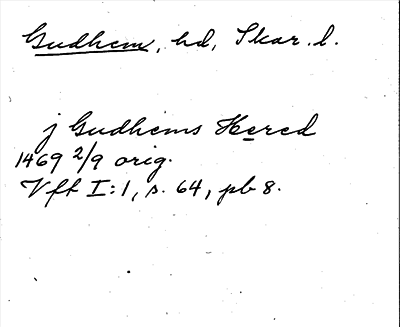 Gudhem, hd, Skar. l.
j Gudhems Hered
1469 2/9 orig.
Vft I:1, s. 64, pb 8.